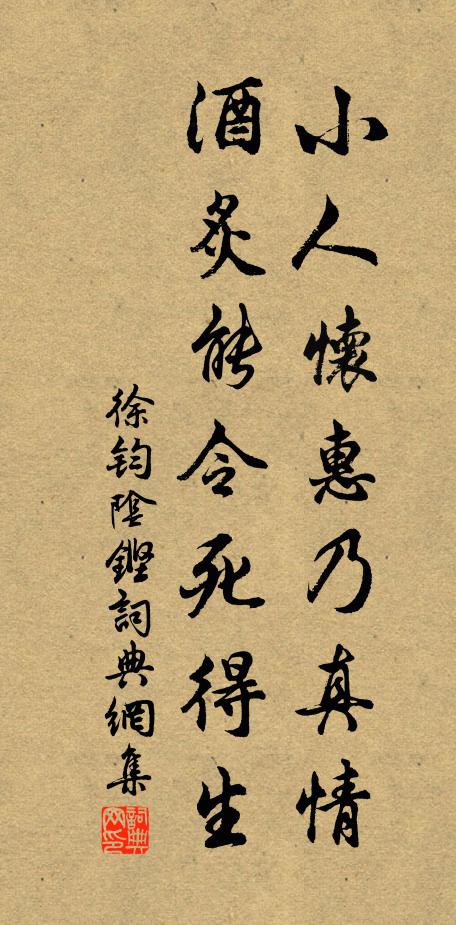 小人懷惠乃真情
酒炙能令死得生
徐鈞陰鏗詞典網集
詞典網印